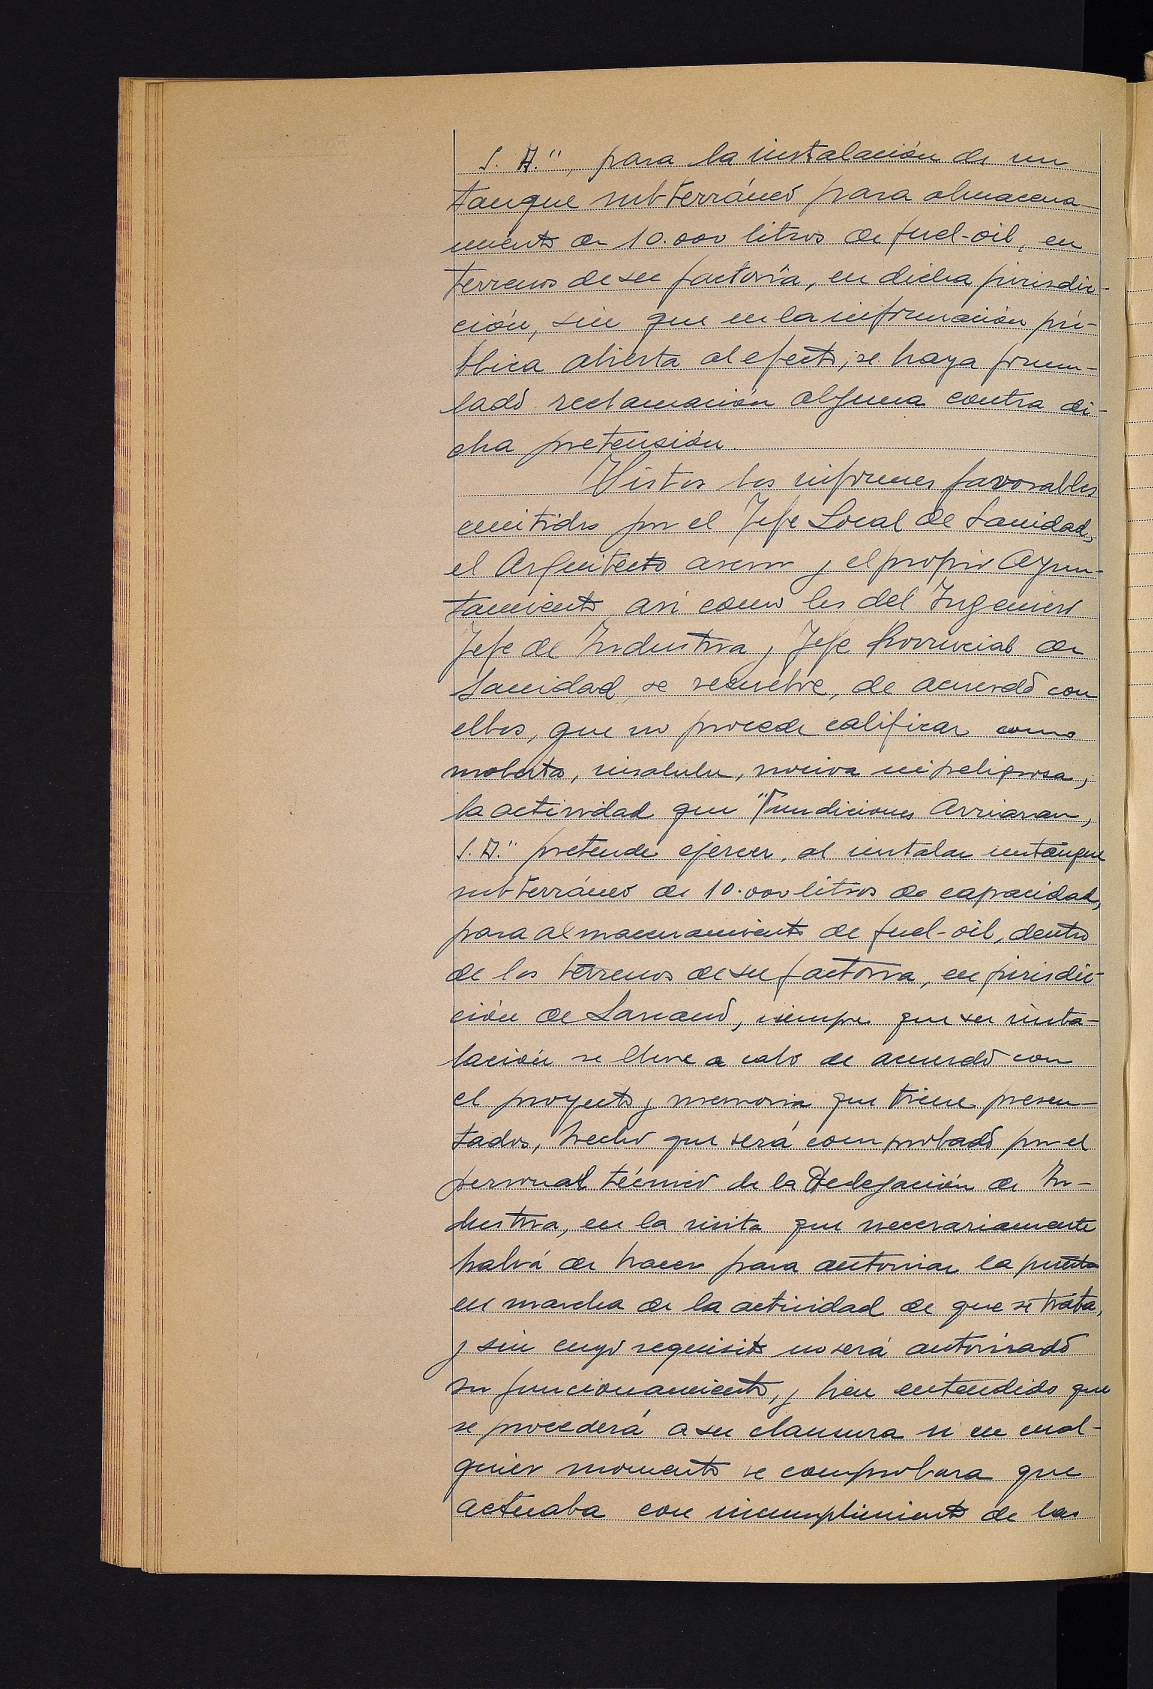 S. A.", para la instalación de un
tanque subterráneo para almacena-
miento de 10.000 litros de fuel-oil, en
terrenos de su factoría, en dicha jurisdic-
ción, sin que en la información pú-
blica abierta al efecto, se haya formu-
lado reclamación alguna contra di-
cha pretensión.
Vistos los informes favorables
emitidos por el Jefe Local de Sanidad,
el Arquitecto asesor y el propio Ayun-
tamiento así como los del Ingeniero
Jefe de Industria y Jefe Provincial de
Sanidad, se resuelve, de acuerdo con
ellos, que no procede calificar como
molesta, insalubre, nociva ni peligrosa,
la actividad que "Fundiciones
S.A." pretende ejercer, al instalar un tanque
subterráneo de 10.000 litros de capacidad,
para almacenamiento de fuel-oil, dentro
de los terrenos de su factoría, en jurisdic-
ción de Lazcano, siempre que su insta-
lación se lleve a cabo de acuerdo con
el proyecto y memoria que tiene presen-
tados, hecho que será comprobado por el
personal técnico de la Delegación de In-
dustria, en la visita que necesariamente
habrá de hacer para autorizar la puesta
en marcha de la actividad de que se trata,
y sin cuyo requisito no será autorizado
su funcionamiento, y bien entendido que
se procederá a su clausura si en cual-
quier momento se comprobara que
actuaba con incumplimiento de las